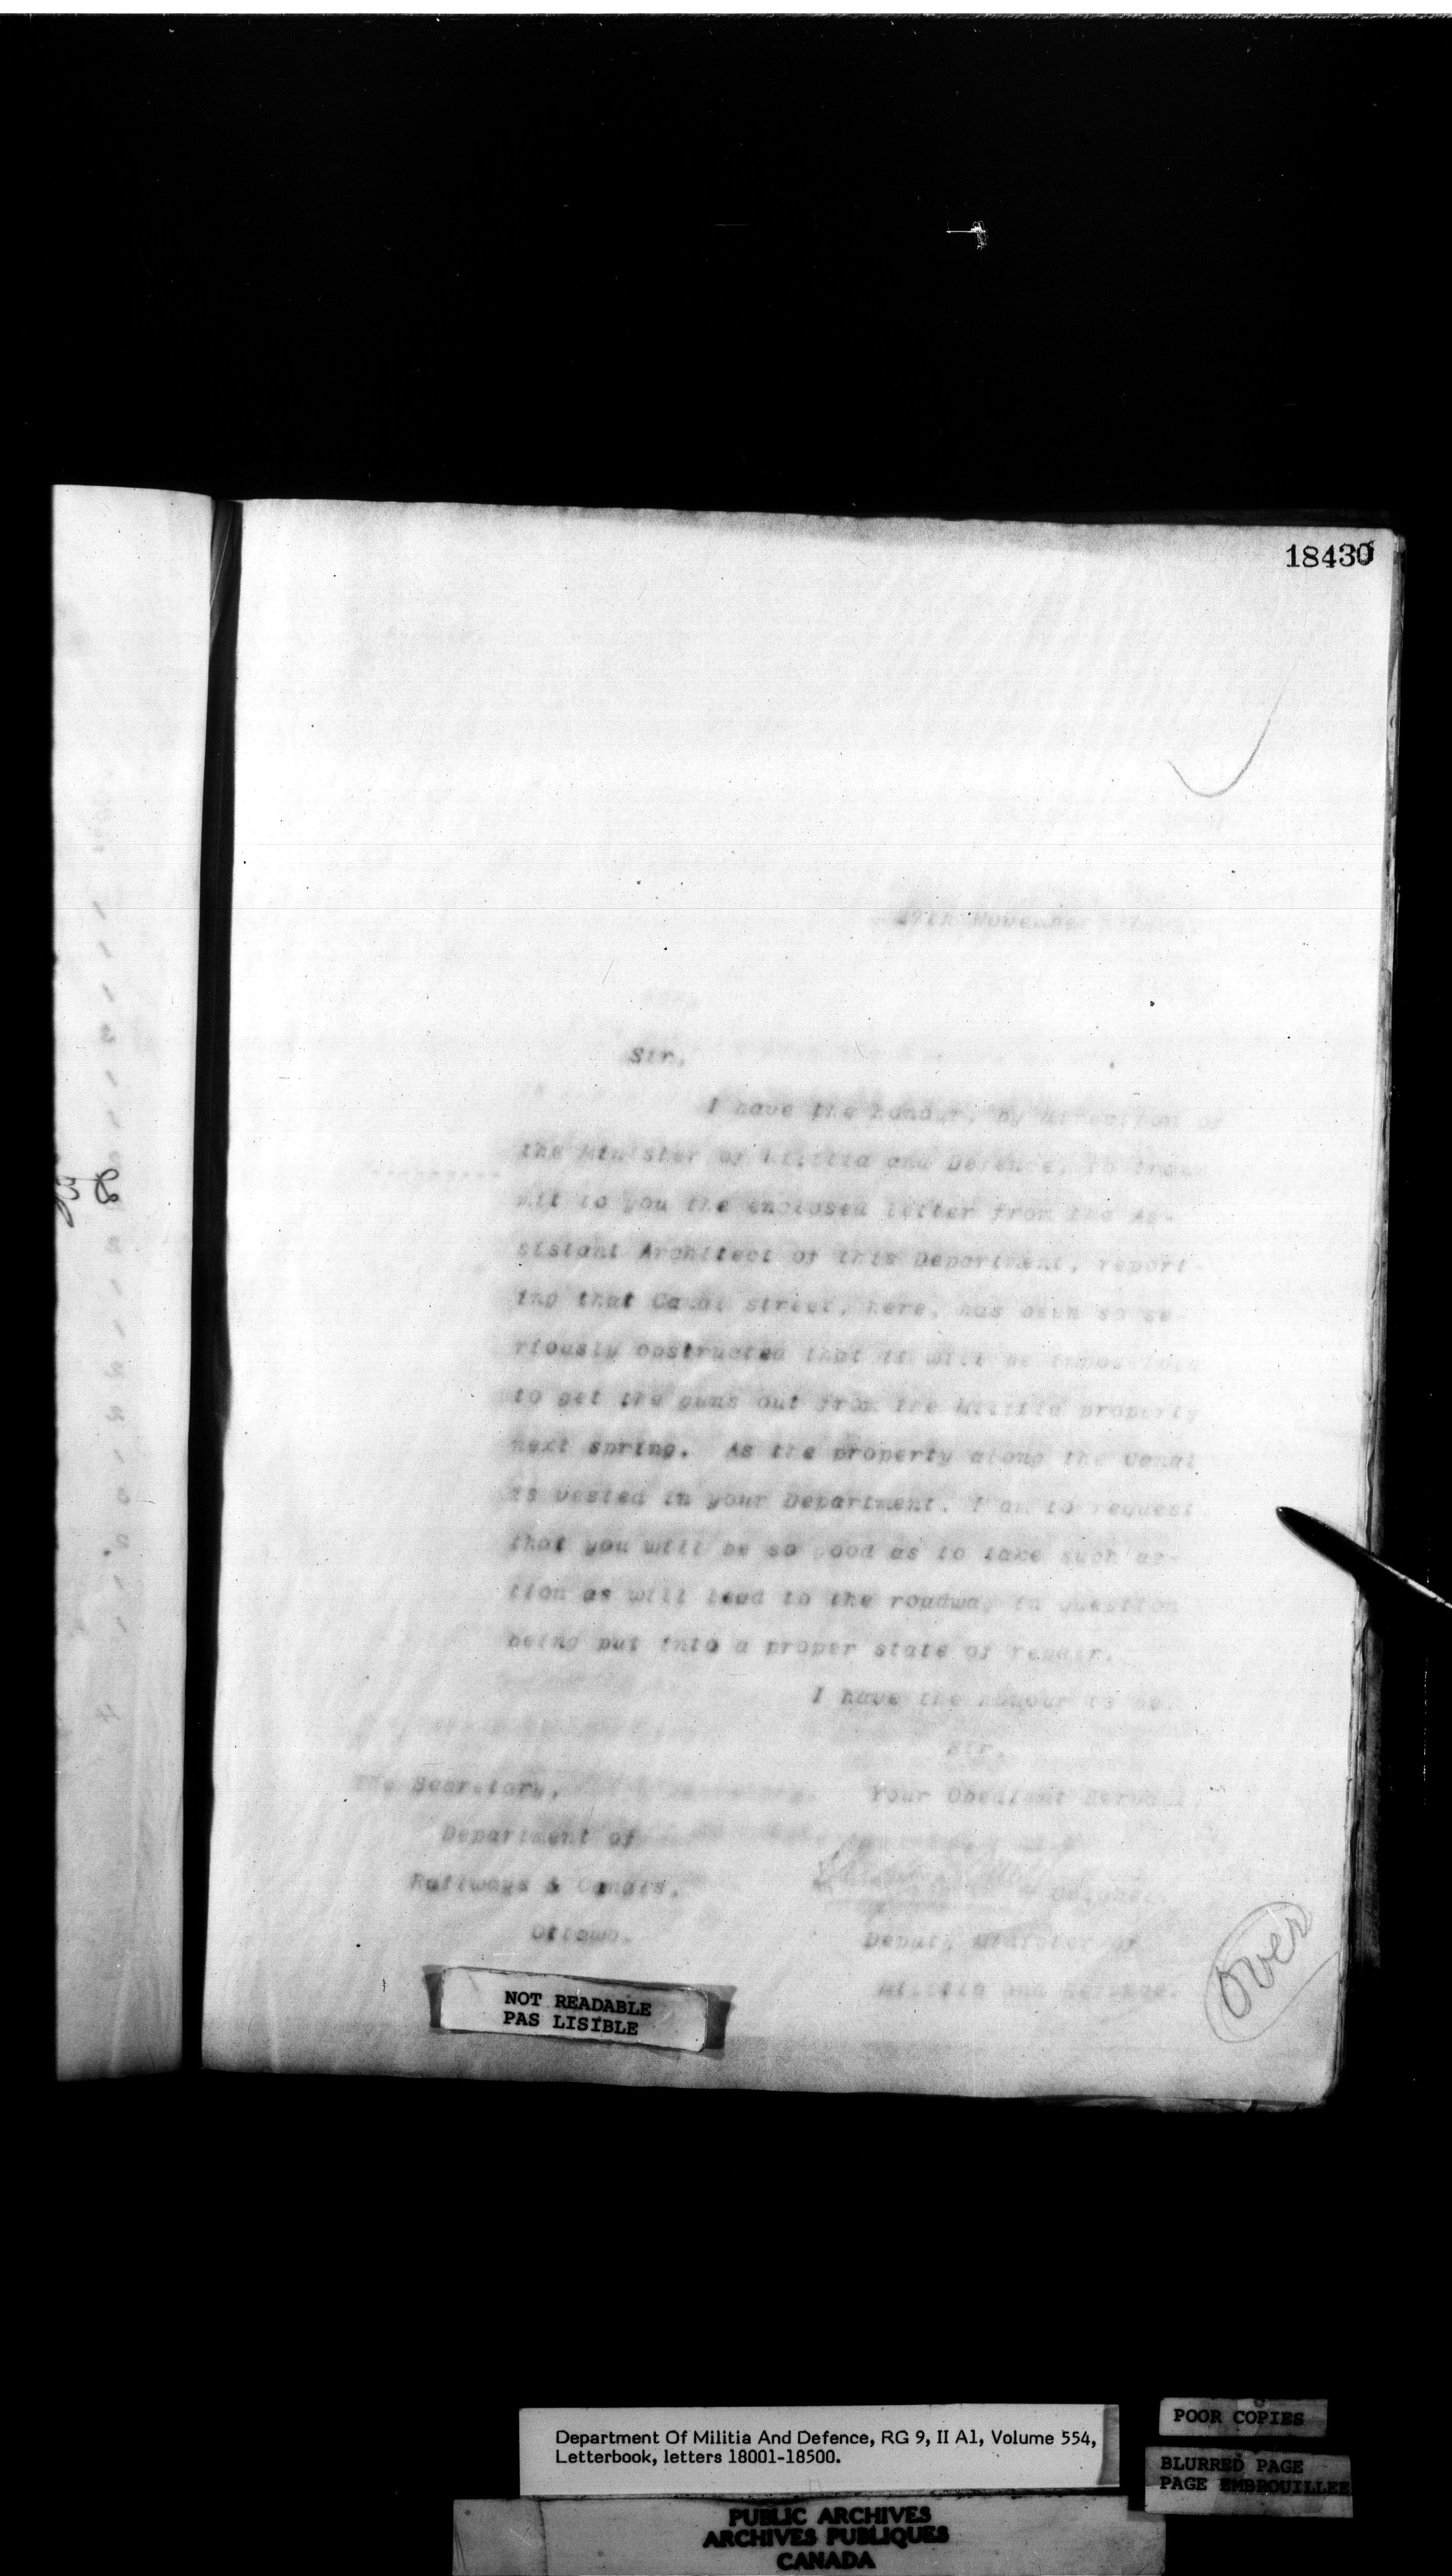 18430
November
Sir,
I have the honour, by direction of
the Minister of Militia and Defence, to trans
mit to you the enclosed letter from the As-
sistant Architect of this Department, report-
ing that Canal street, here, has been so se-
riously obstructed that it will be impossible
to get the guns out from the Militia property
next spring. As the property along the Canal
is vested in your Department, I am to request
that you will be so good as to take such ac-
tion as will lead to the roadway in question
being put into a proper state of repair.
I have the honour to be,
Sir,
Your Obedient Servant,
The Secretary,
Department of
Railways & Canals,
Ottawa.
Colonel,
Deputy Minister of
Militia and Defence.
over
NOT READABLE
PAS LISIBLE
Department Of Militia And Defence, RG 9, II A1, Volume 554,
Letterbook, letters 18001-18500.
POOR COPIES
BLURRED PAGE
PAGE EMBROUILLEE
PUBLIC ARCHIVES
ARCHIVES PUBLIQUES
CANADA